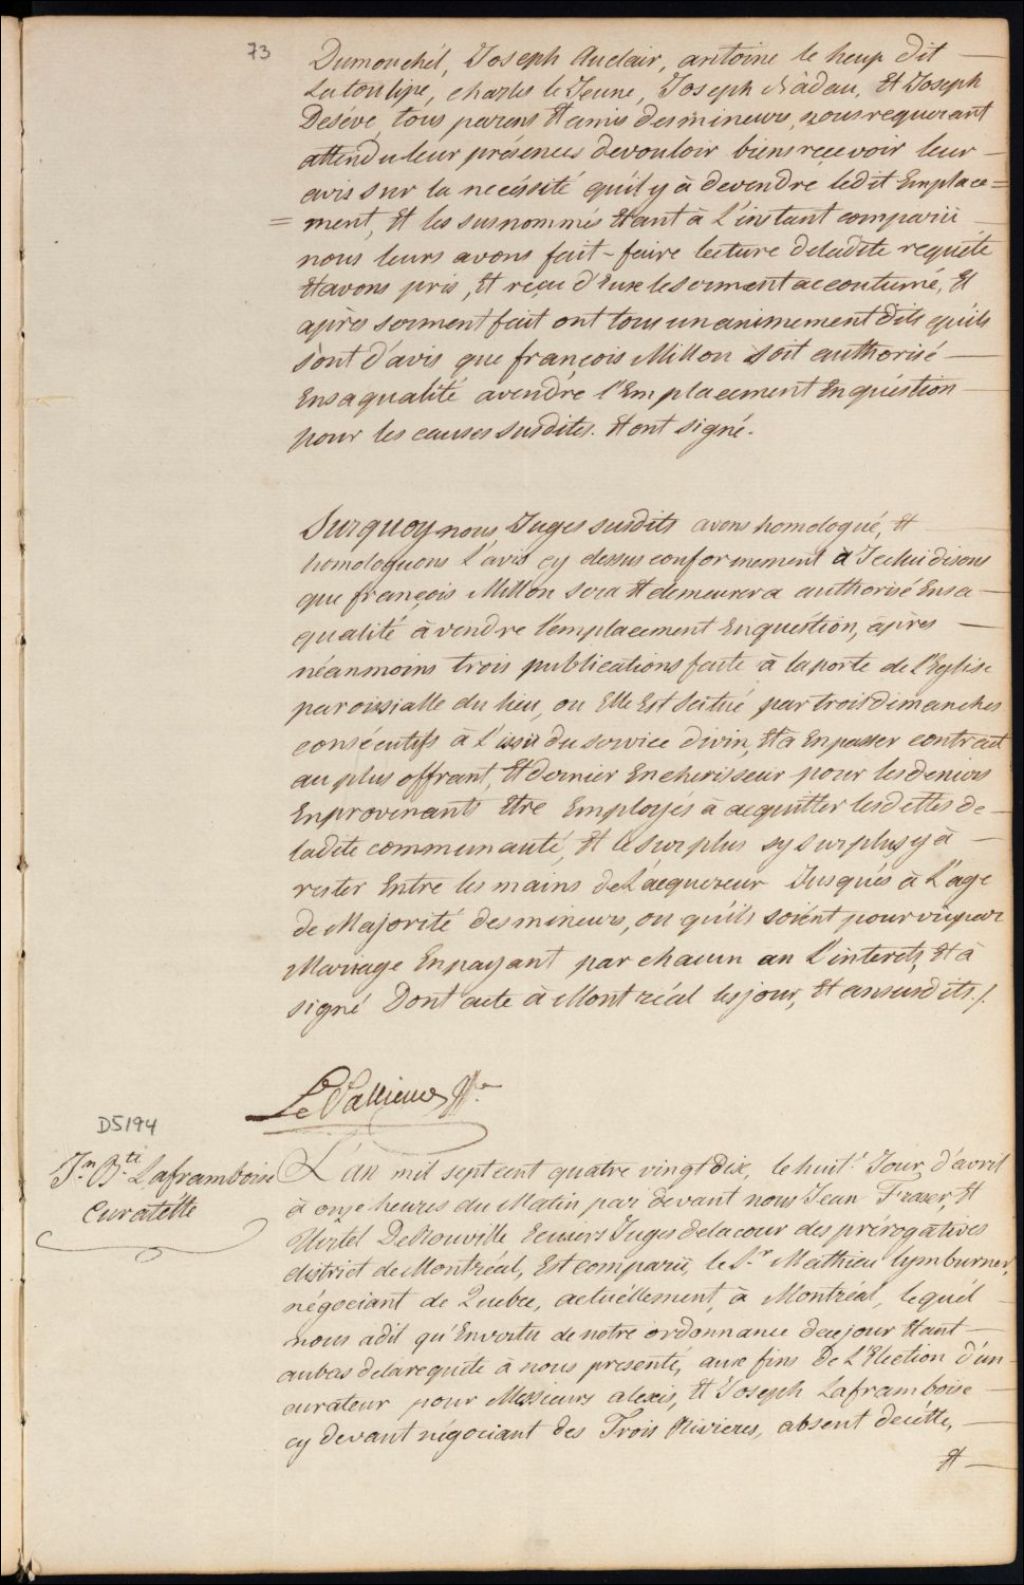 73
Dumouchél, Joseph Auclair, antoine le heup dit
Latoulipe, charles le Jeune, Joseph Nàdau, Et Joseph
Deséve, tous parens Et amis desmineurs, nous requerant
attendu leur présences devouloir biens recevoir leur
avis sur la necéssité qu'il y à devendre ledit Emplace=
= ment, Et les susnommés Etant à L'instant comparü
nous leurs avons fait-faire lecture deladite requéte
Et avons pris, Et reçu d'Eux leserment accoutumé, Et
après serment fait ont tous unanimement dits qu'ils
sont d'avis que françois Millon soit authorisé
Ensaqualité avendre l'Emplacement Enquéstion
pour les causes susdites. Et ont signé.
Surquoy nous Juges susdits avons homologué, Et
homologuons L'avis cy dessus conformement à Jcelui disons
que françois Millon sera Et demeurera authorisé Ensa
qualité à vendre l'emplacement Enquéstion, après
néanmoins trois publications faite à laporte de l'Eglise
paroissialle du lieu, ou Elle Est Scitué par trois dimanches
consécutifs à L'issü du service divin, Et à Enpasser contract
au plus offrant, Et dernier Encherisseur pour lesdeniers
Enprovenants Etre Employés à acquitter lesdettes de
ladite communauté, Et le surplus sy surplus y à
rester Entre les mains deL'acquereur Jusqués à L'age
de Majorité desmineurs, ou qu'ils soient pourvûpar
Mariage Enpayant par chacun an L'interets, Et à
signé Dont acte à Montréal lesjour, Et an susdits./.
Le Pallieur Gff.er
D5194
J.n B.te Laframboise
Curatélle
L'an mil septcent quatre vingt dix, le huit.e Jour d'avril
à onze heures du Matin par devant nous Jean Fraser, Et
Hertel DeRouville Ecuiers Juges delacour des prérogatives
district de Montréal, Est comparü, le S.r Mathieu lymburner,
négociant de Quebec, actuéllement à Montréal, lequél
nous adit qu'Envertu de notre ordonnance decejour Etant
aubas delarequéte à nous presenté, aux fins De L'Election d'un
curateur pour Messieurs alexis, Et Joseph Laframboise
cy devant négociant des Trois Rivieres, absent decétte,
Et